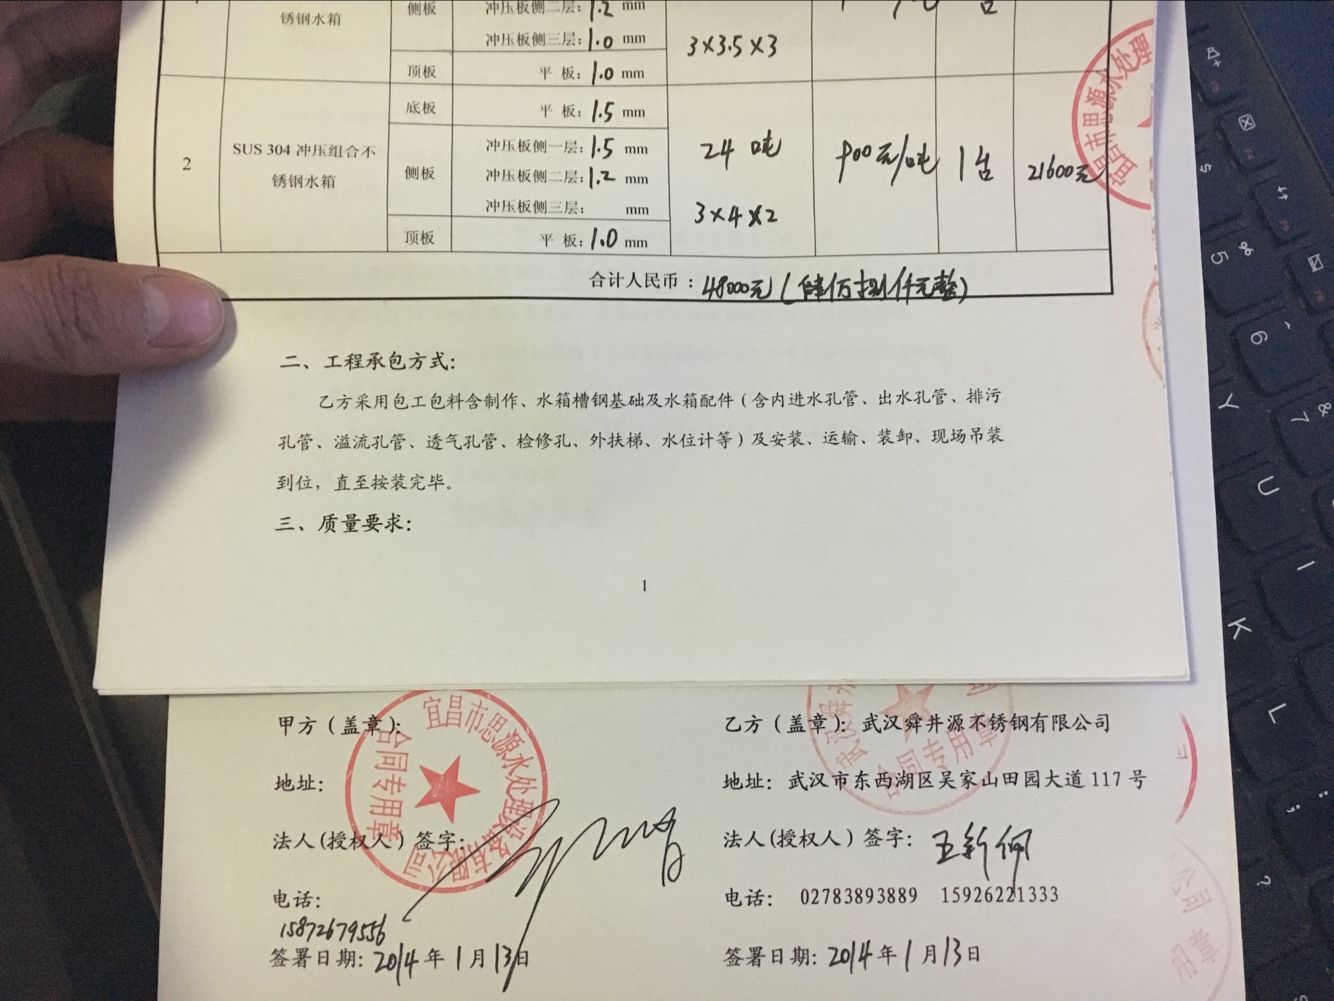 锈钢水箱
侧板
冲压板侧二层: 1.2 mm
冲压板侧三层: 1.0 mm
3×3.5×3
台
顶板
平 板: 1.0 mm
2
SUS 304 冲压组合不
锈钢水箱
底板
平 板: 1.5 mm
侧板
冲压板侧一层: 1.5 mm
冲压板侧二层: 1.2 mm
冲压板侧三层: mm
顶板
平 板: 1.0 mm
24 吨
3×4×2
900元/吨
1台
21600元
合计人民币: 48000元(肆万捌仟元整)
宜昌市思源水处理
二、工程承包方式:
乙方采用包工包料含制作、水箱槽钢基础及水箱配件(含内进水孔管、出水孔管、排污
孔管、溢流孔管、透气孔管、检修孔、外扶梯、水位计等)及安装、运输、装卸、现场吊装
到位,直至按装完毕。
三、质量要求:
1
甲方(盖章):
宜昌市思源水处理设备有限公司
合同专用章
地址:
法人(授权人)签字:
电话:
15872679556
签署日期: 2014年1月13日
乙方(盖章): 武汉舜井源不锈钢有限公司
合同专用章
地址: 武汉市东西湖区吴家山田园大道 117 号
法人(授权人)签字:
电话: 02783893889 15926221333
签署日期: 2014年1月13日
公司
用章
5
%
6
7
&
Y
U
I
K
L
:
;
?